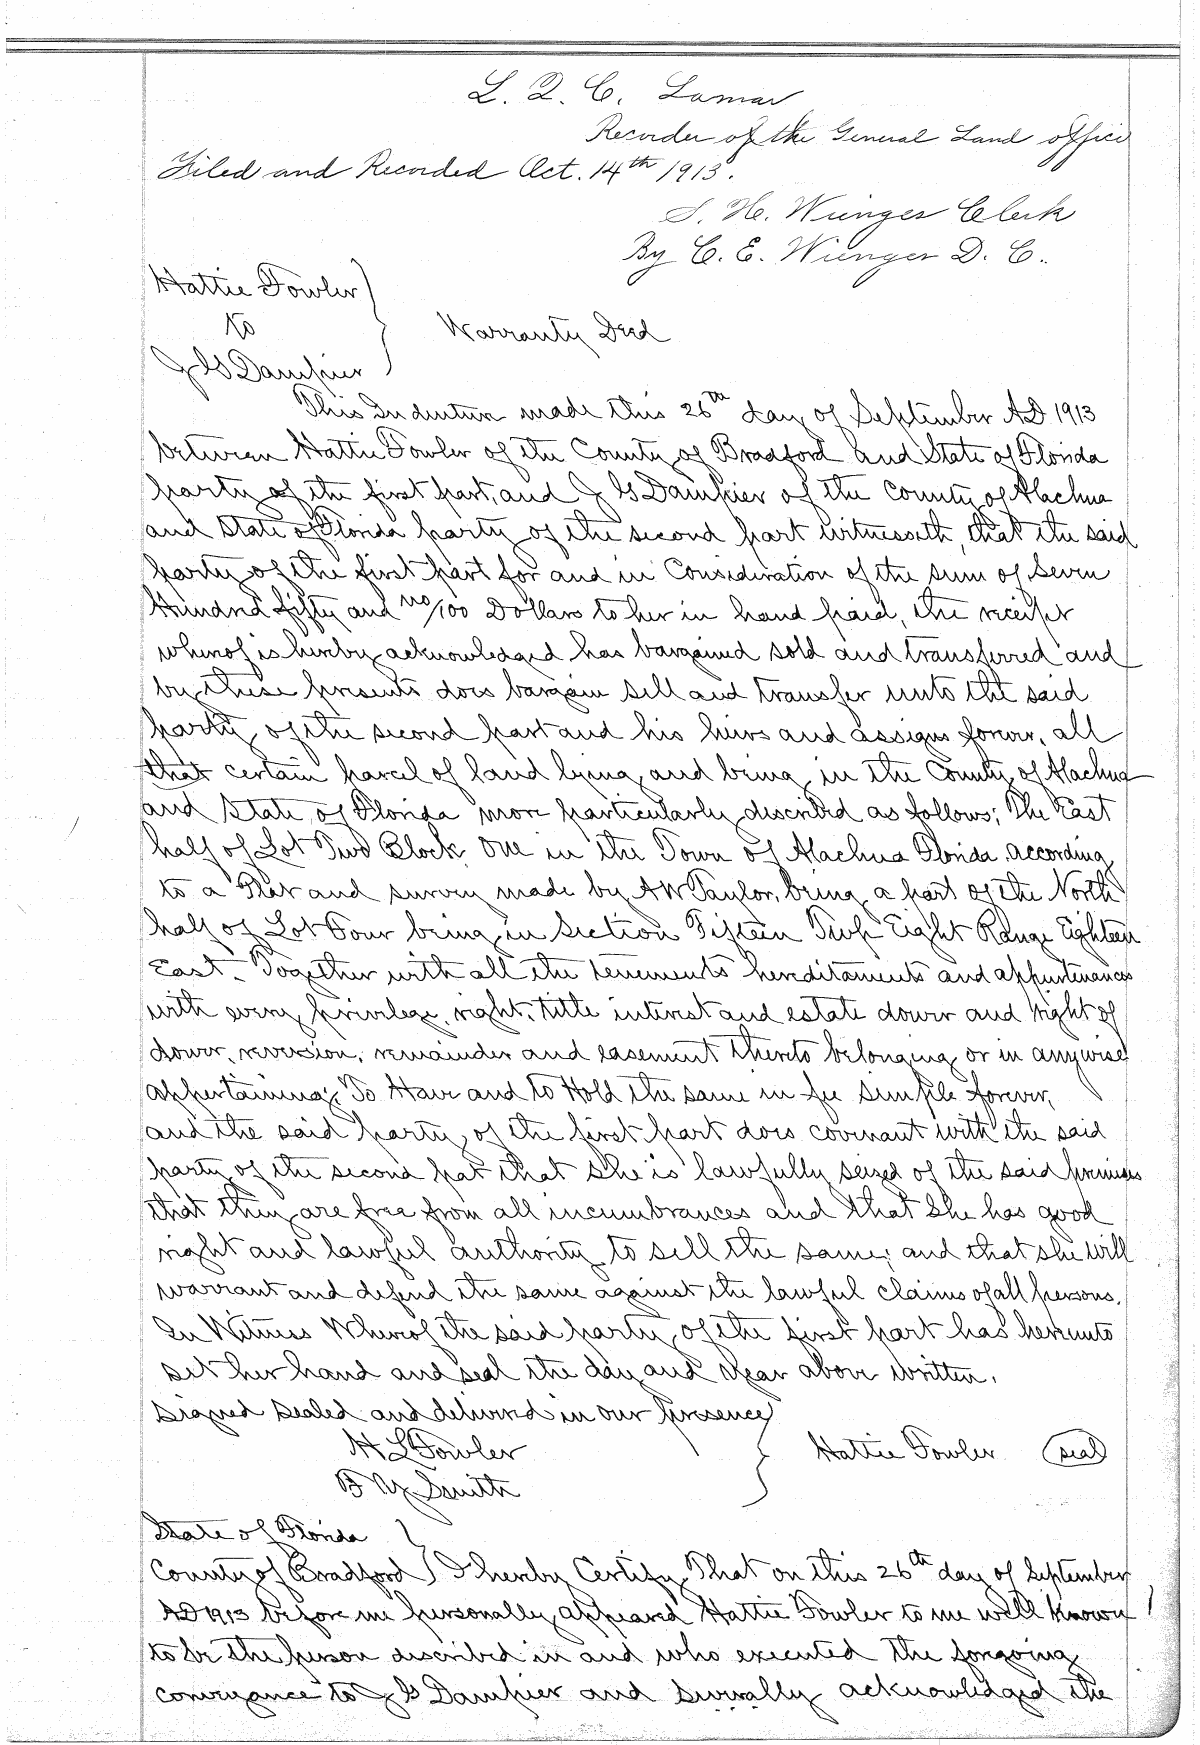 L. Q. C. Lamar
Recorder of the General Land office
Filed and Recorded Oct. 14th 1913.
S. H. Wienges Clerk
By C. E. Wienges D. C.
Hattie Fowler
to
Warranty Deed
J G Dampier
This Indenture made this 26th day of September AD 1913
between Hattie Fowler of the County of Bradford and State of Florida
party of the first part, and J G Dampier of the County of Alachua
and State of Florida party of the second part witnesseth, that the said
party of the first part for and in Consideration of the sum of Seven
Hundred fifty and no/100 Dollars to her in hand paid, the receipt
whereof is hereby acknowledged has bargained sold and transferred and
by these presents does bargain sell and transfer unto the said
party of the second part and his heirs and assigns forever, all
that certain parcel of land lying and being in the County of Alachua
and State of Florida more particularly described as follows; The East
half of Lot Two Block One in the Town of Alachua Florida, according
to a Plat and survey made by A W Taylor, being a part of the North
half of Lot Four being in Section Fifteen Twp Eight Range Eighteen
East. Together with all the tenements hereditaments and appurtenances
with every privilege, right, title interest and estate dower and right of
dower, reversion, remainder and easement thereto belonging or in anywise
appertaining; To Have and to Hold the same in fee simple forever,
and the said party of the first part does covenant with the said
party of the second pat that she is lawfully seized of the said premises
that they are free from all incumbrances and that She has good
right and lawful authority to sell the same; and that she will
warrant and defend the same against the lawful claims of all persons.
In Witness Whereof the said party of the first part has hereunto
set her hand and seal the day and year above written.
Signed Sealed and delivered in our presence
H L Fowler Hattie Fowler (seal)
Smith
State of Florida
County of Bradford I hereby Certify That on this 26th day of September
AD 1913 before me personally appeared Hattie Fowler to me well known
to be the person described in and who executed the forgoing
conveyance to J G Dampier and severally acknowledged the